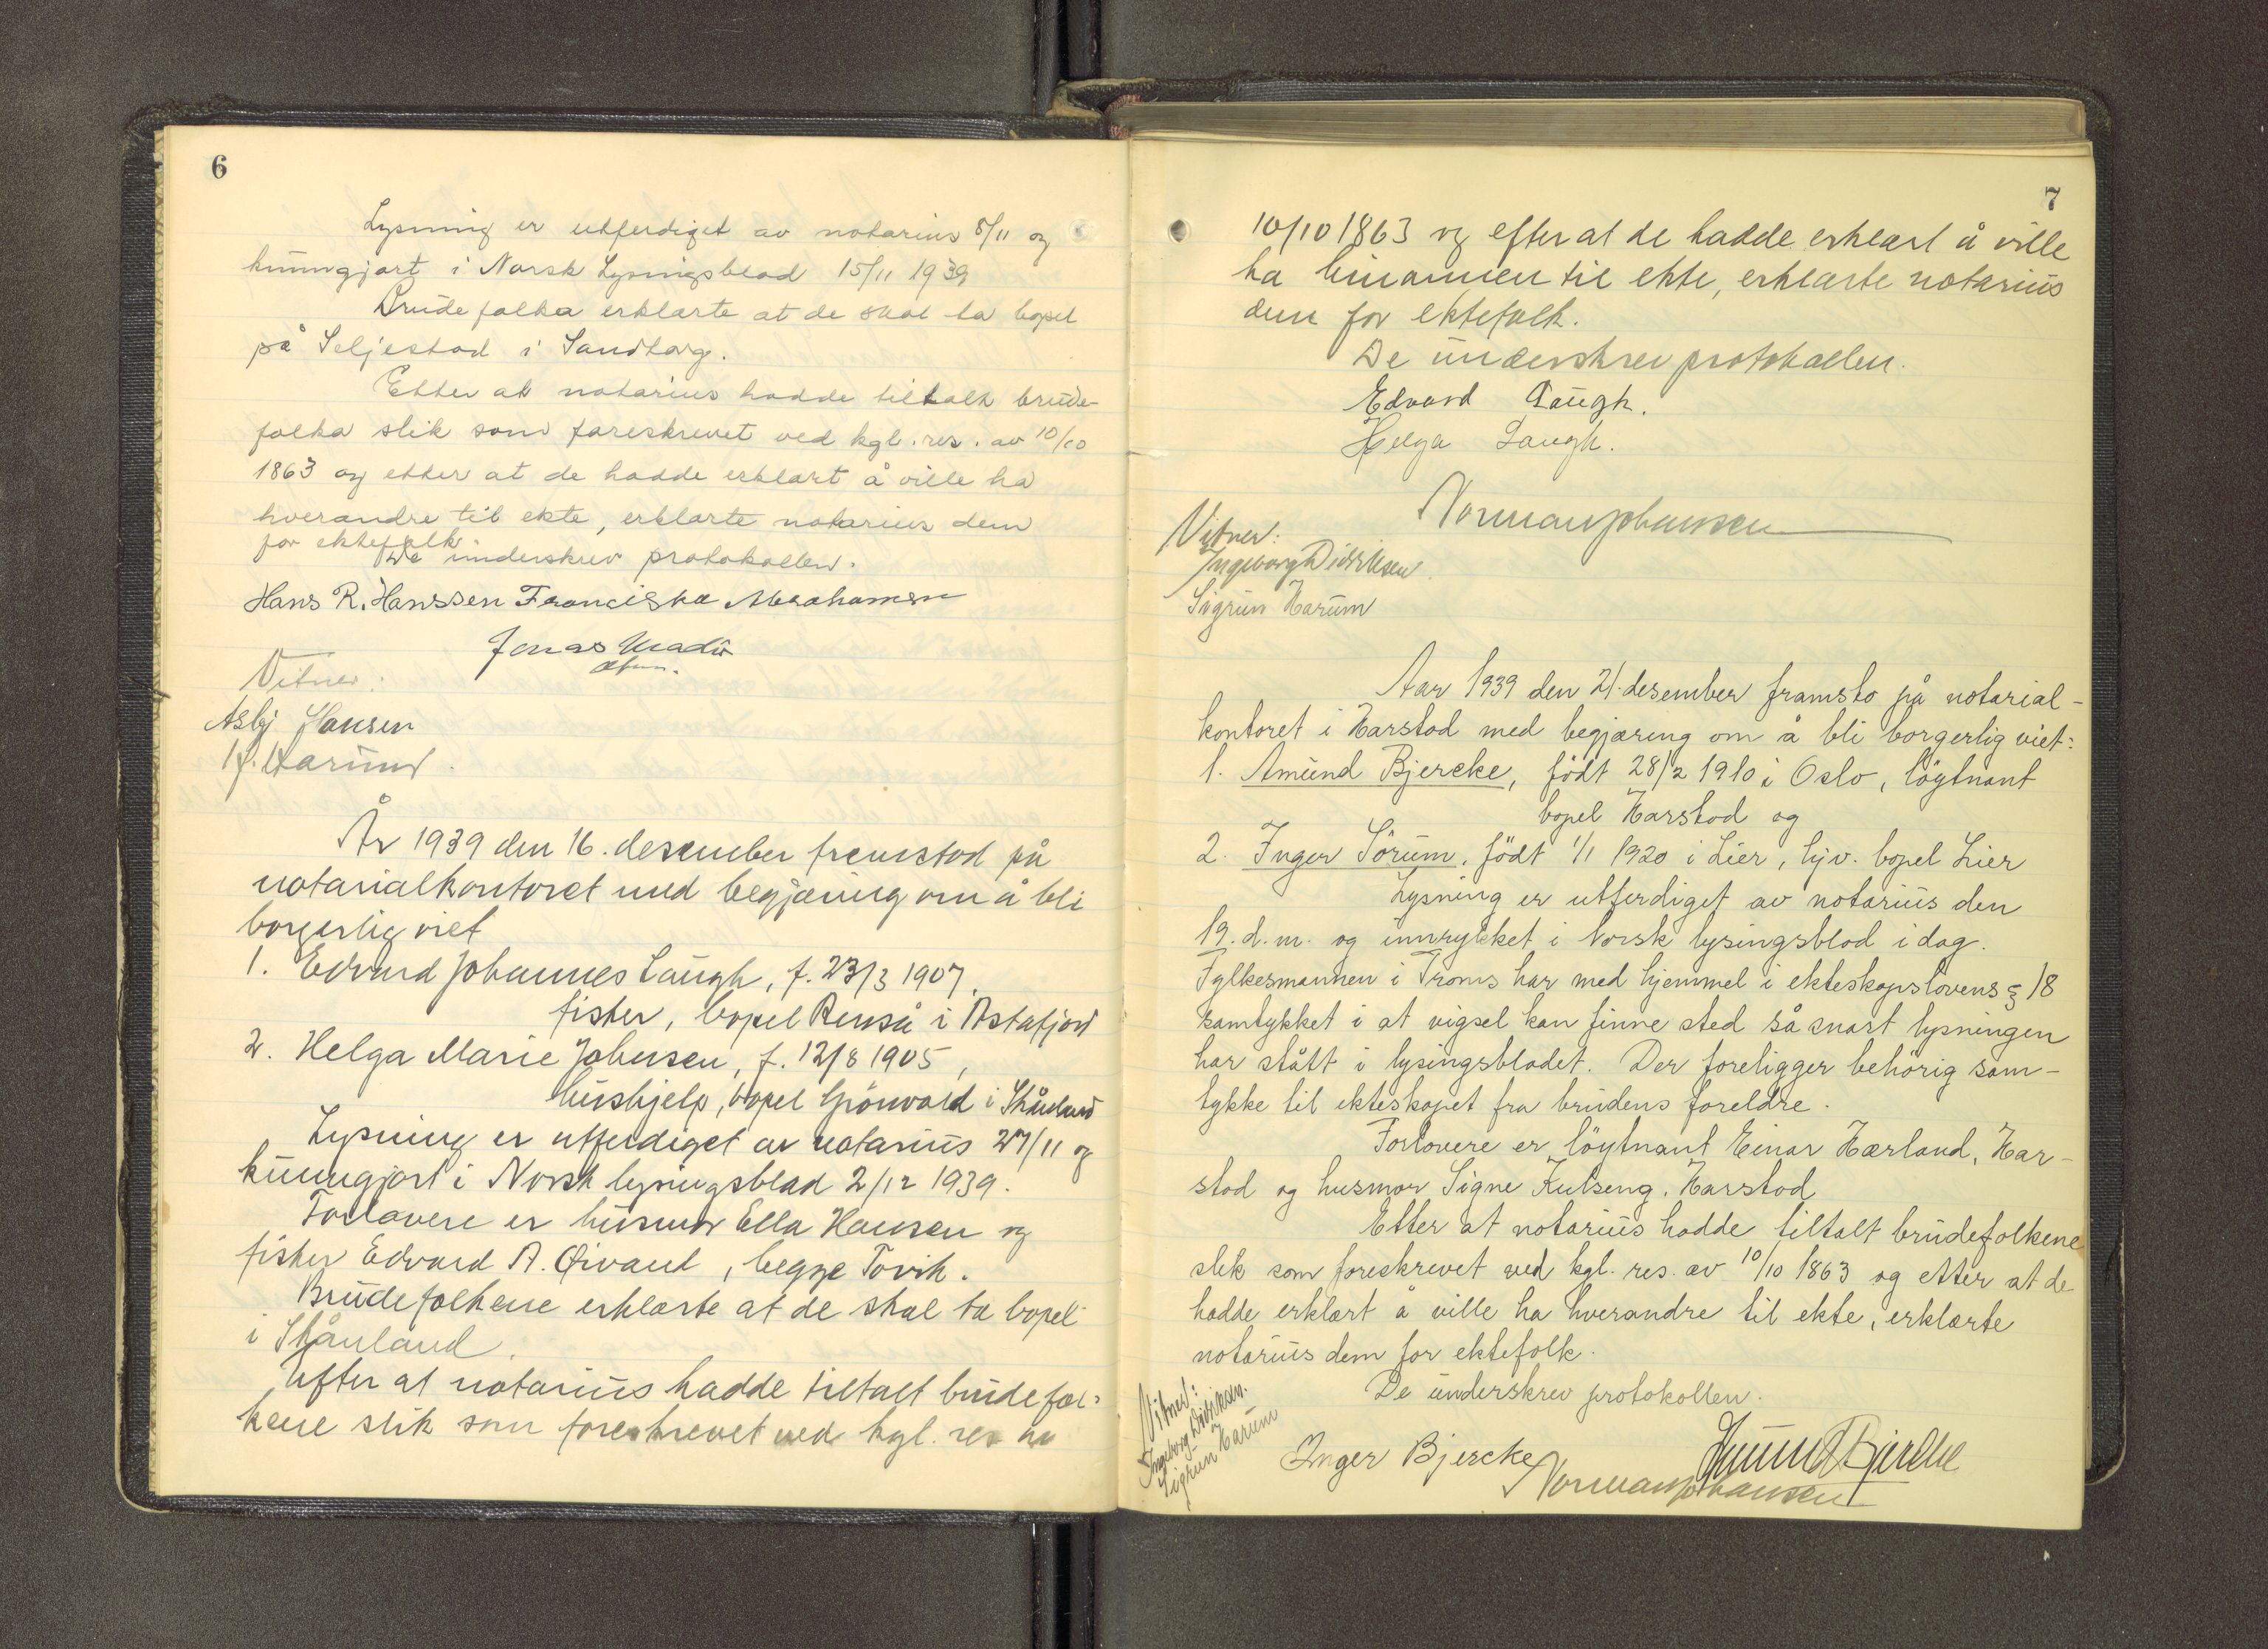 6
Lysning er utferdiget av notarius 8/11 og
kunngjort i Norsk Lysingsblad 15/11 1939
Brudefolka erklærte at de skal ta bopel
på Seljestad i Sandtorg.
Etter at notarius hadde tiltalt brude-
folka slik som foreskrevet ved kgl. res. av 10/10
1863 og etter at de hadde erklært å ville ha
hverandre til ekte, erklærte notarius dem
for ektefolk.
De underskrev protokollen.
Hans R. Hanssen Franciska Abrahamsen
Jonas
Vitner:
Asbj Hansen
Harum.
År 1939 den 16. desember fremstod på
notarialkontoret med begjæring om å bli
borgerlig viet
1. Edvard Johannes Laugh, f. 23/3 1907,
fisker, bopel Renså i Astafjord
2. Helga Marie Johnsen, f. 12/8 1905,
hushjelp, bopel Grönvold i Skånland
Lysning er utferdiget av notarius 27/11 og
kunngjort i Norsk lysingsblad 2/12 1939.
Forlovere er husmor Ella Hansen og
fisker Edvard A. , begge Tovik.
Brudefolkene erklærte at de skal ta bopel
i Skånland.
Efter at notarius hadde tiltalt brudefol-
kene slik som foreskrevet ved kgl. res av
7
10/10 1863 og efter at de hadde erklært å ville
ha hinannen til ekte, erklærte notarius
dem for ektefolk.
De underskrev protokollen.
Edvard Laugh.
Helga Laugh.
Norman Johansen
Vitner:
Ingeborg Didriksen
Sigrun Harum
Aar 1939 den 21. desember framsto på notarial-
kontoret i Harstad med begjæring om å bli borgerlig viet:
1. Amund Bjercke, födt 28/2 1910 i Oslo, löytnant
bopel Harstad og
2. Inger Sörum, födt 1/1 1920 i Lier, hjv. bopel Lier
Lysning er utferdiget av notarius den
19. d.m. og innrykket i Norsk lysingsblad i dag.
Fylkesmannen i Troms har med hjemmel i ekteskapslovens § 18
samtykket i at vigsel kan finne sted så snart lysningen
har stått i lysingsbladet. Der foreligger behörig sam-
tykke til ekteskapet fra brudens foreldre.
Forlovere er löytnant Einar Hærland, Har-
stad og husmor Signe Kulseng, Harstad
Etter at notarius hadde tiltalt brudefolkene
slik som foreskrevet ved kgl. res. av 10/10 1863 og etter at de
hadde erklært å ville ha hverandre til ekte, erklærte
notarius dem for ektefolk.
De underskrev protokollen.
Vitner:
Ingeborg Didriksen.
Sigrun Harum
Inger Bjercke
Amund Bjercke
Norman Johansen